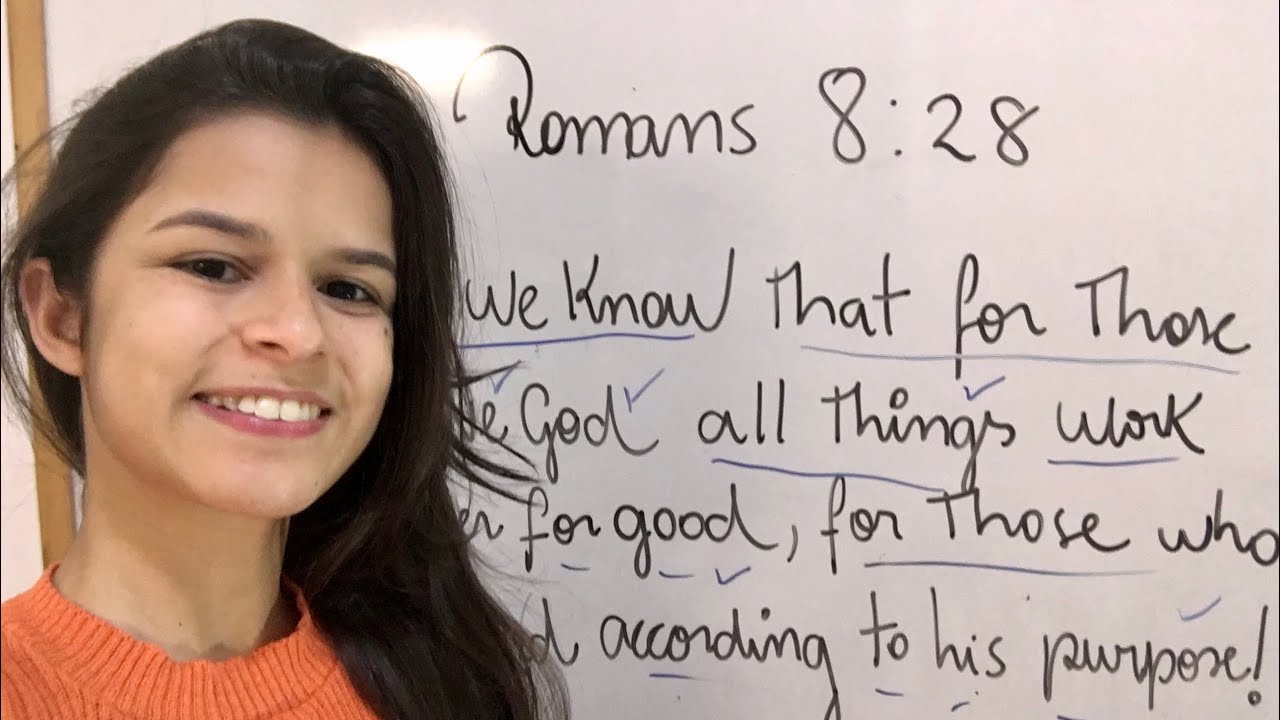 Romans 8:28
we know that for those
God all things work
for good, for those who
according to his purpose!